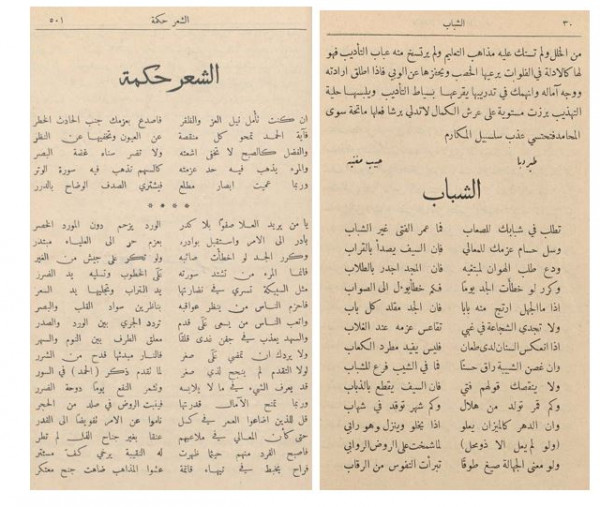 الشباب ٣٠
من الخلل ولم تسنك عليه مذاهب التعليم ولم يرتسخ منه عباب التأديب فهو
لها كالادلة في الفلوات يرعيها الخصب ويحفزها عن الوبي فاذا اطلق ارادته
ووجه آماله وانهمك في تدريبها يقرعها بسياط التأديب ويلبسها حلية
التهذيب برزت مستوية على عرش الكمال لاتدلي برشا فعلها ماتحة سوى
المحامد فتحتسي عذب سلسبيل المكارم
طيردبا حبيب مغنيه
الشباب
تطلب في شبابك للصعاب فما عمر الفتى غير الشباب
وسل حسام عزمك للمعالي فان السيف يصدأ بالقراب
ودع طلب الهوان لمبتغيه فان المجد اجدر بالطلاب
وكرر لو خطأت الجد يومًا فكم خطأ يول الى الصواب
اذا ما الجهل ارتج منه بابا فان الجد مقلد كل باب
ولا تجدي الشجاعة في غبي تقاعس عزمه عند الغلاب
اذا انعكس السنان لدى طعان فليس يفيد مطرد الكعاب
وان غصن الشبيبة راق حسنًا فما في الشيب فرع للشباب
ولا ينقصك قولهم فتي فان السيف يقطع بالذباب
وكم قمر تولد من هلال وكم شهر توقد في شهاب
وان الدهر كالميزان يعلو اذا يخلو وينزل وهو رابي
(ولو لم يعل الا ذو محل) لما شمخت على الروض الروابي
ولو معنى الجهالة صيغ طوقًا تبرأت النفوس من الرقاب
الشعر حكمة ٥٠١
الشعر حكمة
ان كنت تأمل نيل العز والظفر فاصدع بعزمك جنب الحادث الخطر
فآية الحمد تمحو كل منقصة عن العيون وتخفيها عن النظر
والفضل كالصبح لا تخفى اشعته ولا تفسر سناه غضة البصر
والمرء يذهب فيه حد عزمته كالسهم تذهب فيه سورة الوتر
وربما عميت ابصار مطلع فيشتري الصدف الوضاح بالدرر
* * * *
يا من يريد العلا صفوًا بلا كدر الورد يزحم دون المورد الخصر
بادر الى الامر واستقبل بوادره بعزم حر الى العلياء مبتدر
وكرر الجد لو اخطأت صائبه ولو تكر على جيش من الغير
فانما المرء من تشتد سورته على الخطوب وتسليه يد الضرر
مثل السبيكة تسري في نضارتها يد التراب وتجليها يد السعر
فاحزم الناس من ينظر عواقبه بناظرين سواد القلب والبصر
واتعب الناس من يسعى على قدم تردد الجري بين الورد والصدر
والسهد يعذب في جفن لدى قلقًا معلق الطرف بين النوم والسهر
ولا يردك ان تمضي على سفر فالنار مبدئها قدح من الشرر
لولا التقدم لم ينجح لذي سفر لما تقدم ذكر (الحمد) في السور
قد يعرف الشيء في ما لا يلابسه ونشر النفع يومًا دوحة الضرر
وربما تمنح الآمال قدرتها فينبت الروض في صلد من الحجر
قل للذين اضاعوا العمر في كسل ناموا عن الامر تفويضًا الى القدر
حتى كأن المعالي في ملاعبهم عنقا بغير جناح القلب لم تطر
فاصبح الفرد منهم حيثما ظهرت له النقيبة يرعي كف مستتر
فراح يخبط في تيهاء قاتمة عشوا المذاهب ضاهت جنح معتكر